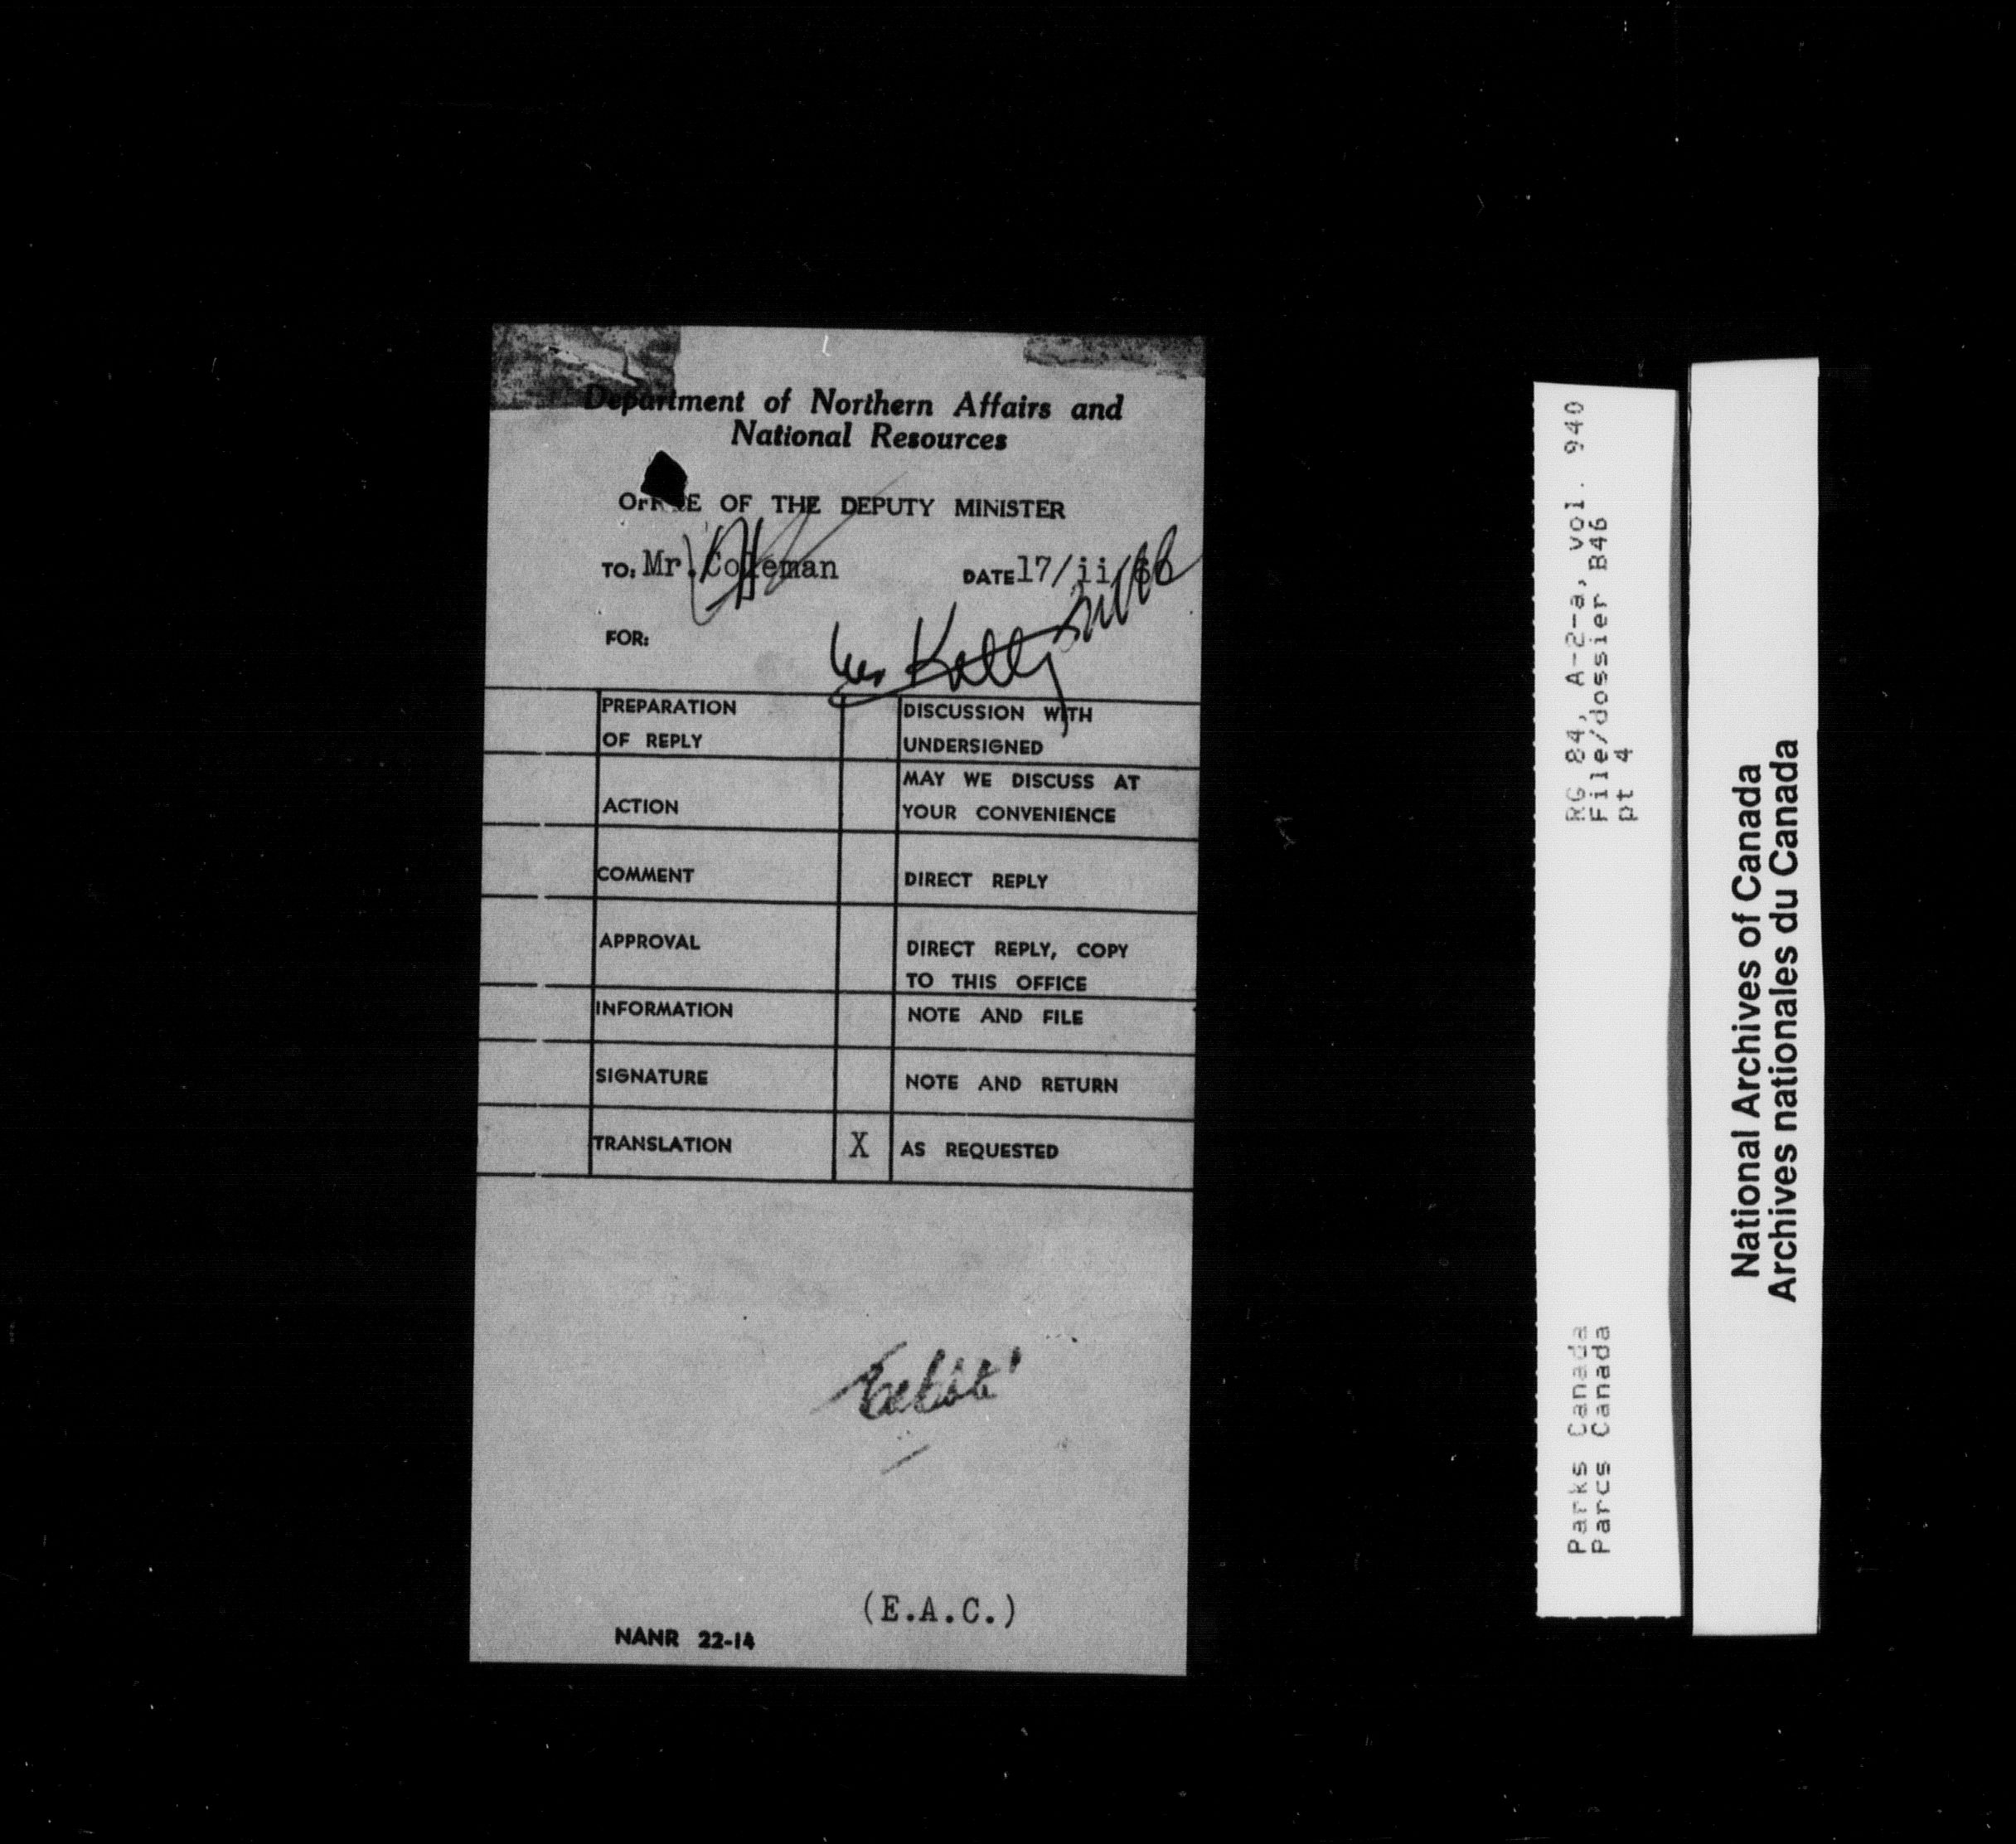 Department of Northern Affairs and
National Resources
OFFICE OF THE DEPUTY MINISTER
TO: Mr. Coleman DATE 17/ii/66
FOR:
Mr Kelly
PREPARATION OF REPLY
DISCUSSION WITH UNDERSIGNED
ACTION
MAY WE DISCUSS AT YOUR CONVENIENCE
COMMENT
DIRECT REPLY
APPROVAL
DIRECT REPLY, COPY TO THIS OFFICE
INFORMATION
NOTE AND FILE
SIGNATURE
NOTE AND RETURN
TRANSLATION
X AS REQUESTED
(E.A.C.)
NANR 22-14
RG 84, A-2-a, vol. 940
File/dossier B46
pt 4
Parks Canada
Parcs Canada
National Archives of Canada
Archives nationales du Canada